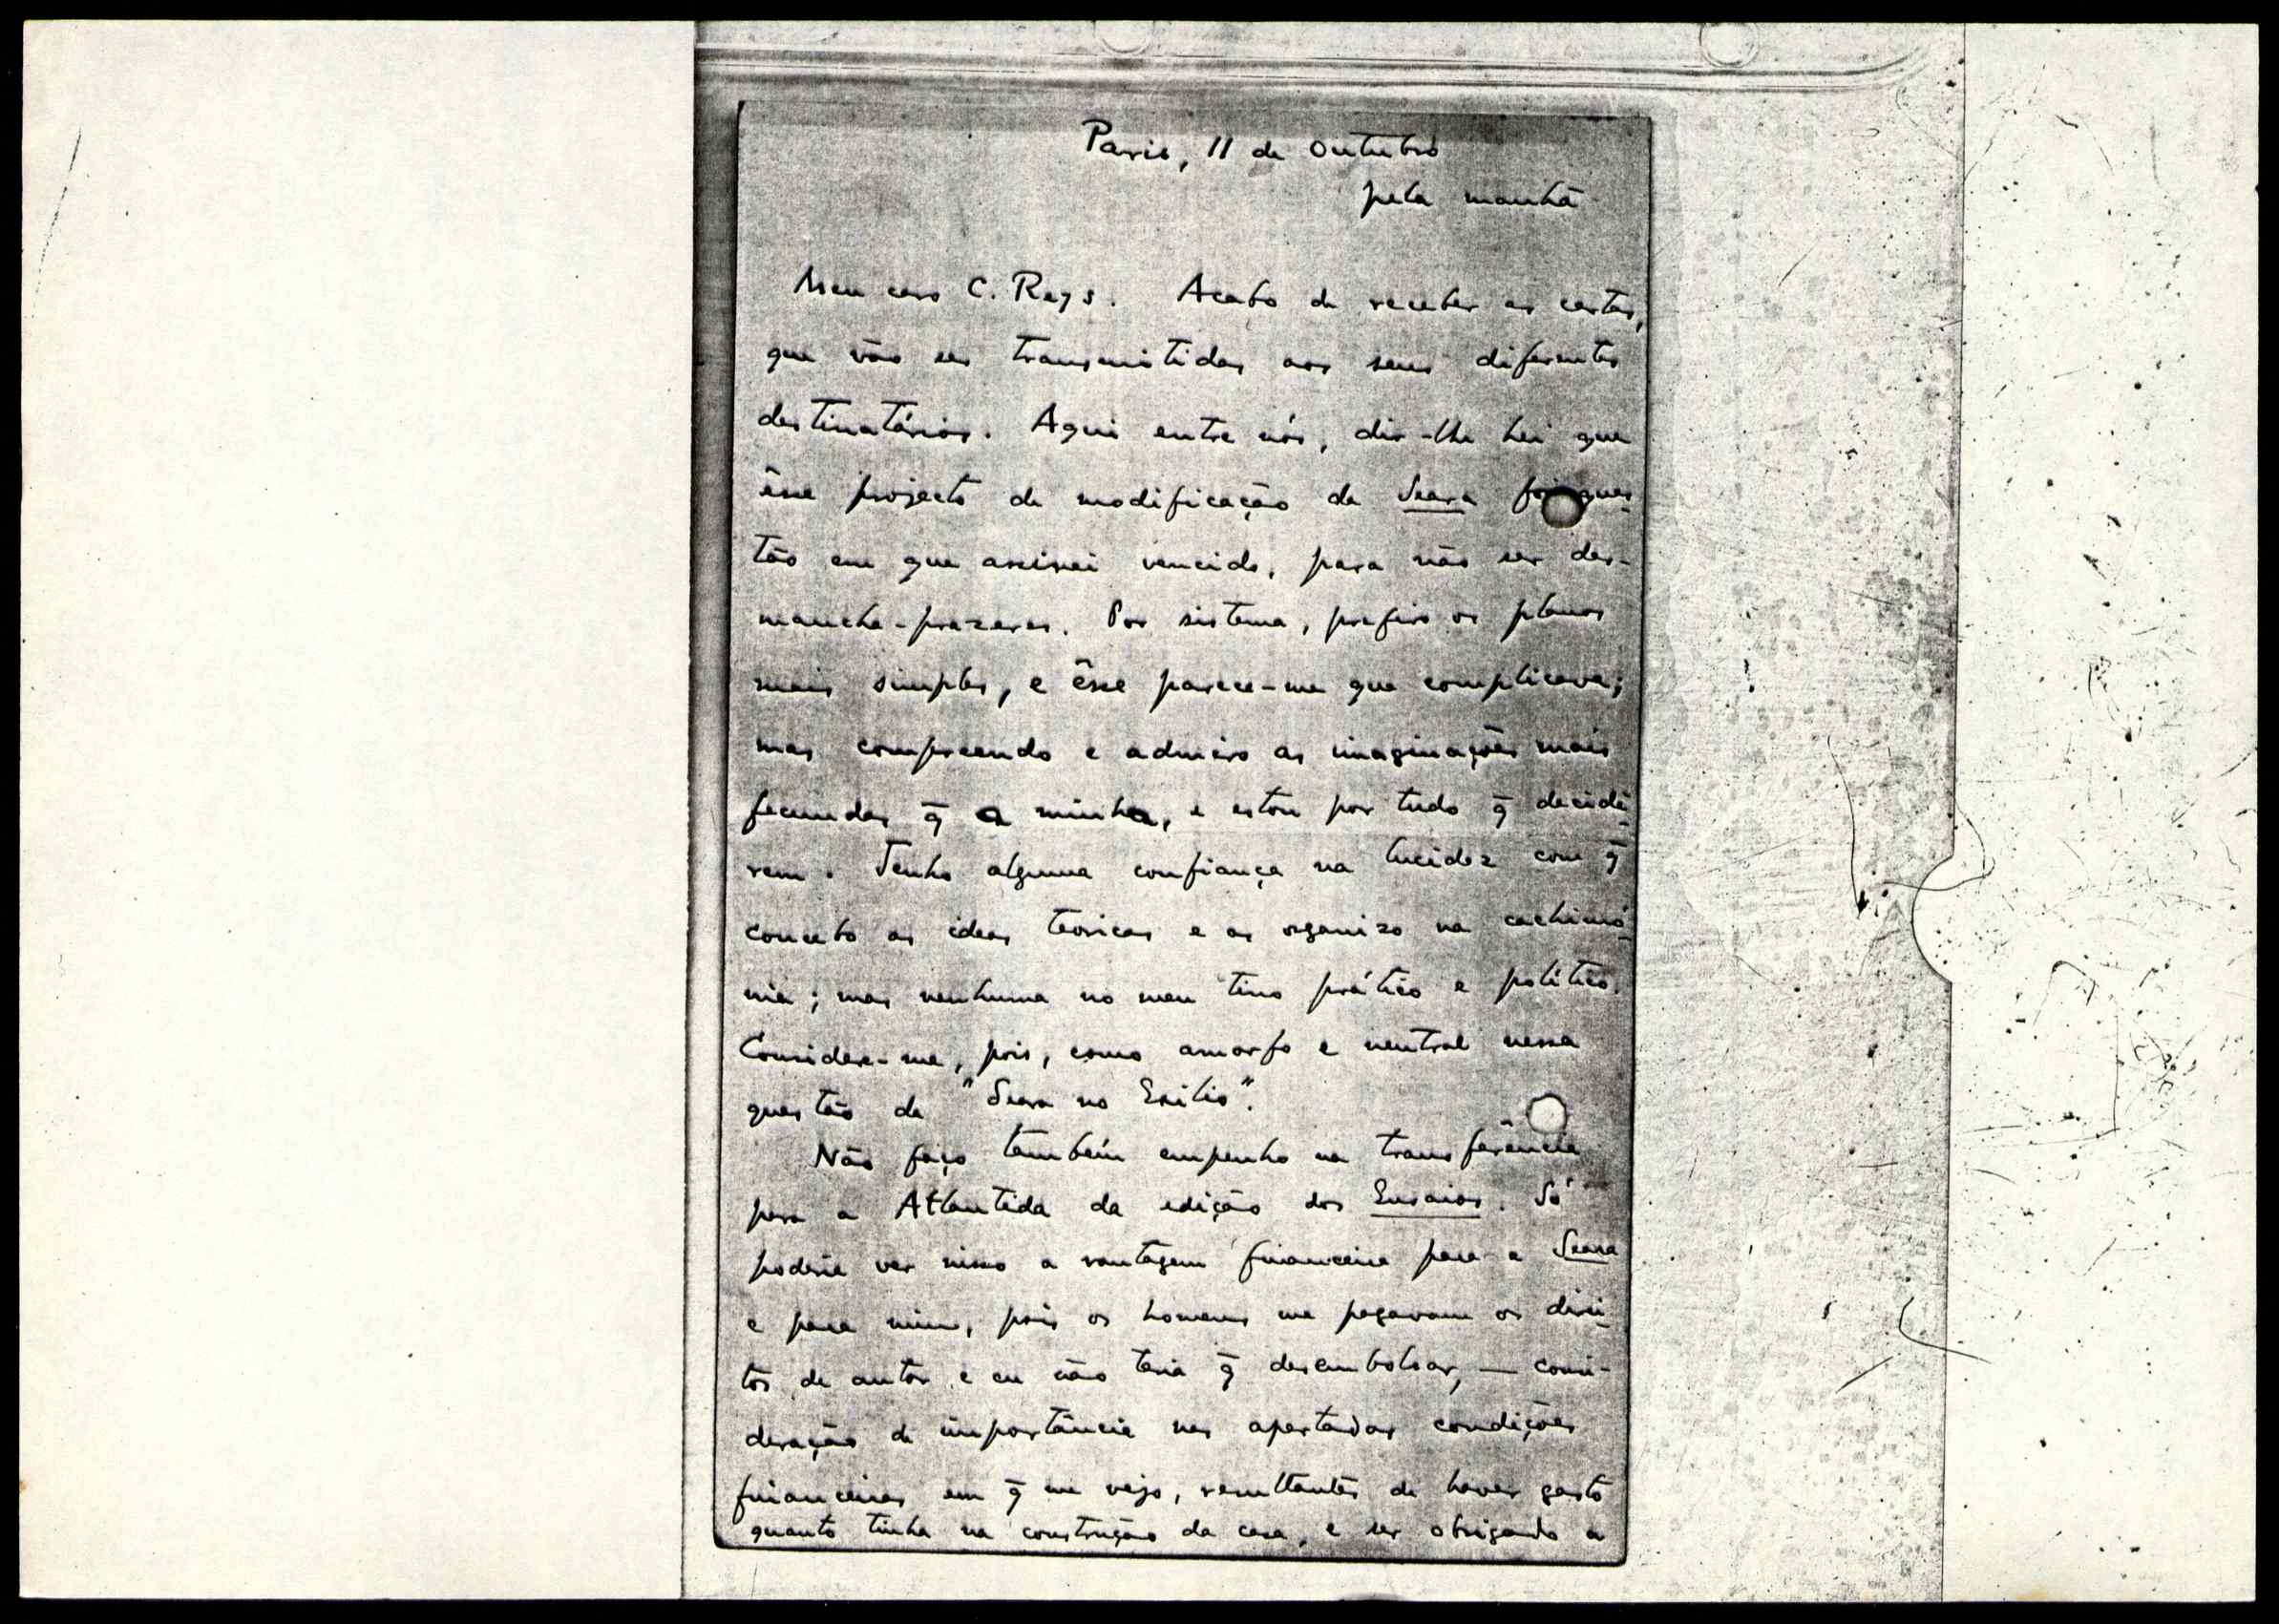 Paris, 11 de Outubro
pela manhã
Meu caro C. Reys. Acabo de receber as cartas,
que vão ser transmitidas aos seus diferentes
destinatários. Aqui entre nós, dir-lhe hei que
êsse projecto de modificação da Seara foi ques-
tão em que assinei vencido, para não ser des-
mancha-prazeres. Por sistema, prefiro os planos
mais simples, e êsse parece-me que complicava;
mas compreendo e admiro as imaginações mais
fecundas q̄ a minha, e estou por tudo q̄ decidi-
rem. Tenho alguma confiança na lucidez com q̄
concebo as ideas teoricas e as organizo na cachimó-
nia; mas nenhuma no meu tino prático e político.
Considere-me, pois, como amorfo e neutral nessa
questão da "Seara no Exilio".
Não faço também empenho na transferência
para a Atlantida da edição dos Ensaios. Só
poderia ver nisso a vantagem financeira para a Seara
e para mim, pois os homens me pagavam os direi-
tos de autor e eu não teria q̄ desembolsar, — consi-
deração de importância nas apertadas condições
financeiras em q̄ me vejo, resultantes de haver gasto
quanto tinha na construção da casa, e ser obrigado a